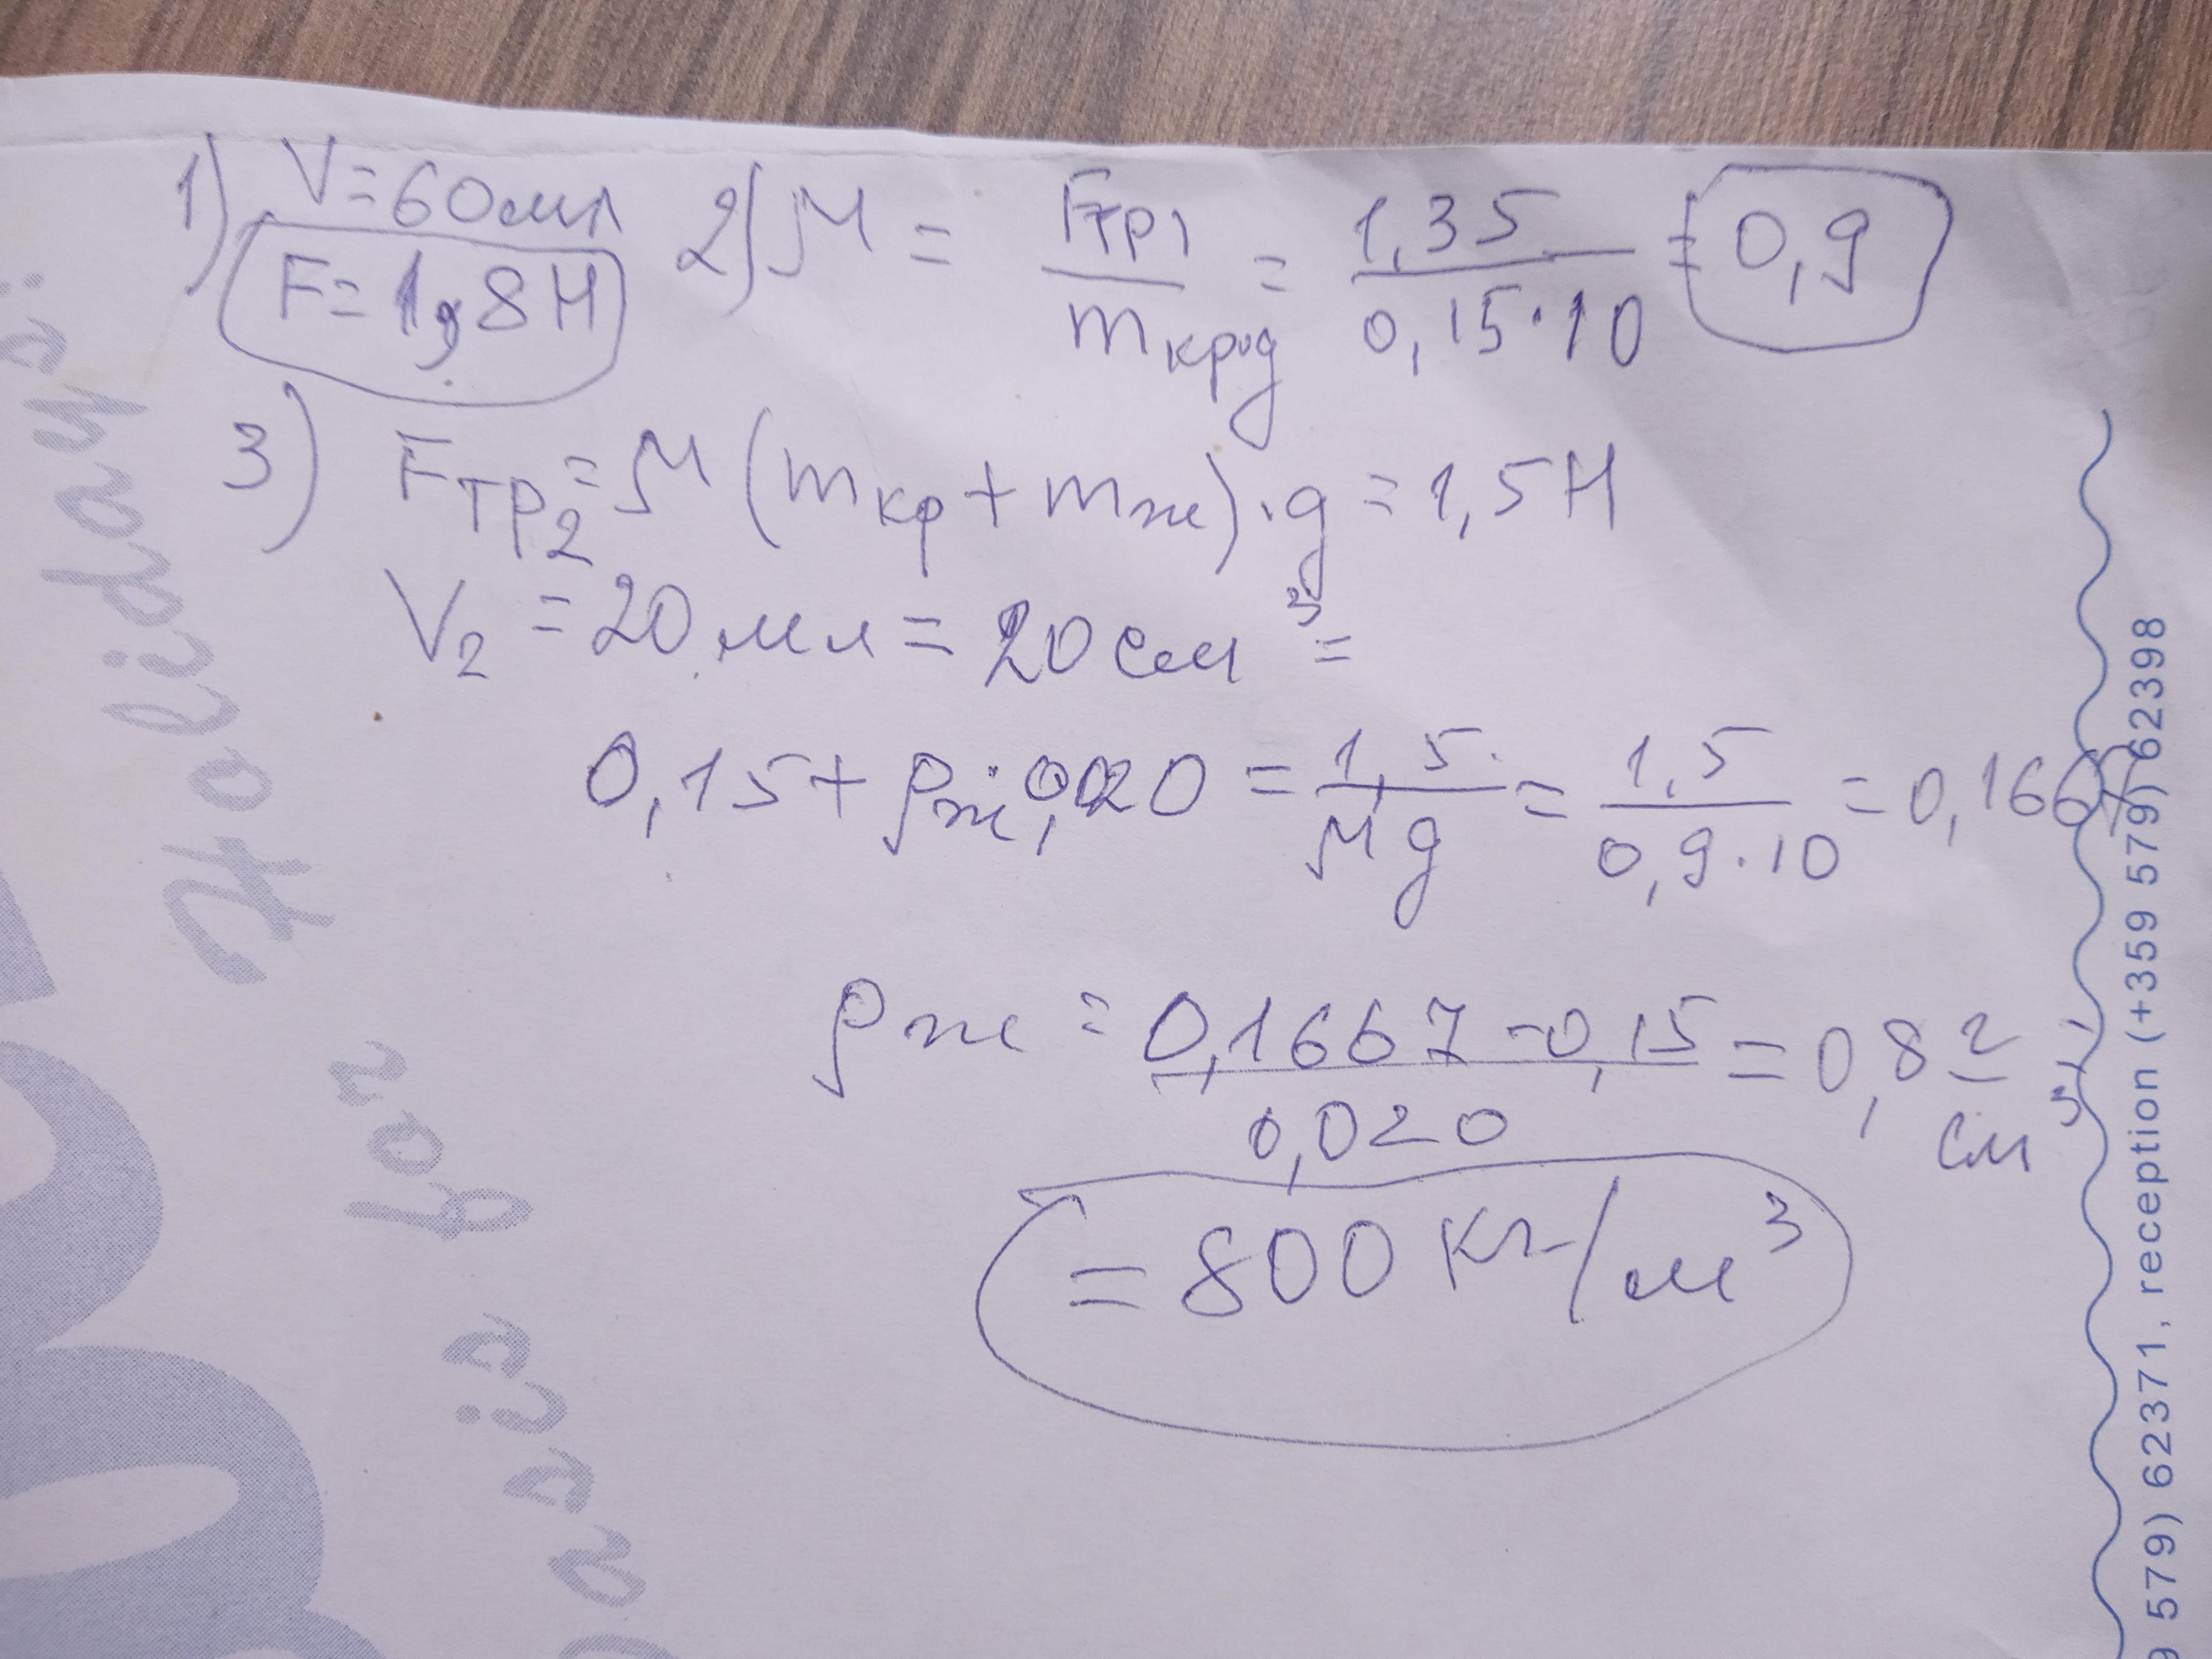 1) V=60мл
F=1,8Н
2) μ = Fтр1/mкр·g = 1,35/0,15·10 = 0,9
3) Fтр2 = μ (mкр + mж)·g = 1,5Н
V2 = 20 мл = 20 см³ =
0,15 + ρж·0,020 = 1,5/μg = 1,5/0,9·10 = 0,1667
ρж = 0,1667 - 0,15/0,020 = 0,8 г/см³
= 800 кг/м³
Holiday
for
9 579) 62371, reception (+359 579) 62398